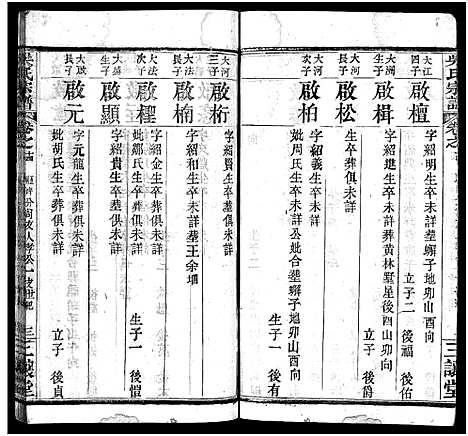 吳氏宗譜
卷之
三讓堂
大江
四子
啟檀
字紹明生卒未詳葬螄子地卯山酉向
立子二 後福 後佑
大洲
長子
啟楫
字紹進生卒未詳葬黃林墅屋後酉山卯向
立子 後爵
大河
長子
啟松
生卒葬俱未詳
大河
次子
啟柏
字紹義生卒未詳公妣合葬螄子地卯山酉向
妣周氏生卒未詳
生子一 後有
大河
三子
啟桁
字紹賢生卒葬俱未詳
大法
長子
啟楠
字紹和生卒未詳葬王余壋
大法
次子
啟檉
字紹金生卒葬俱未詳
妣鄒氏生卒葬俱未詳
生子一 後愷
啟顯
字紹貴生卒葬俱未詳
大啟
長子
啟元
字元龍生卒葬俱未詳
妣胡氏生卒葬俱未詳
立子 後貞
吳氏宗譜
卷之
三讓堂